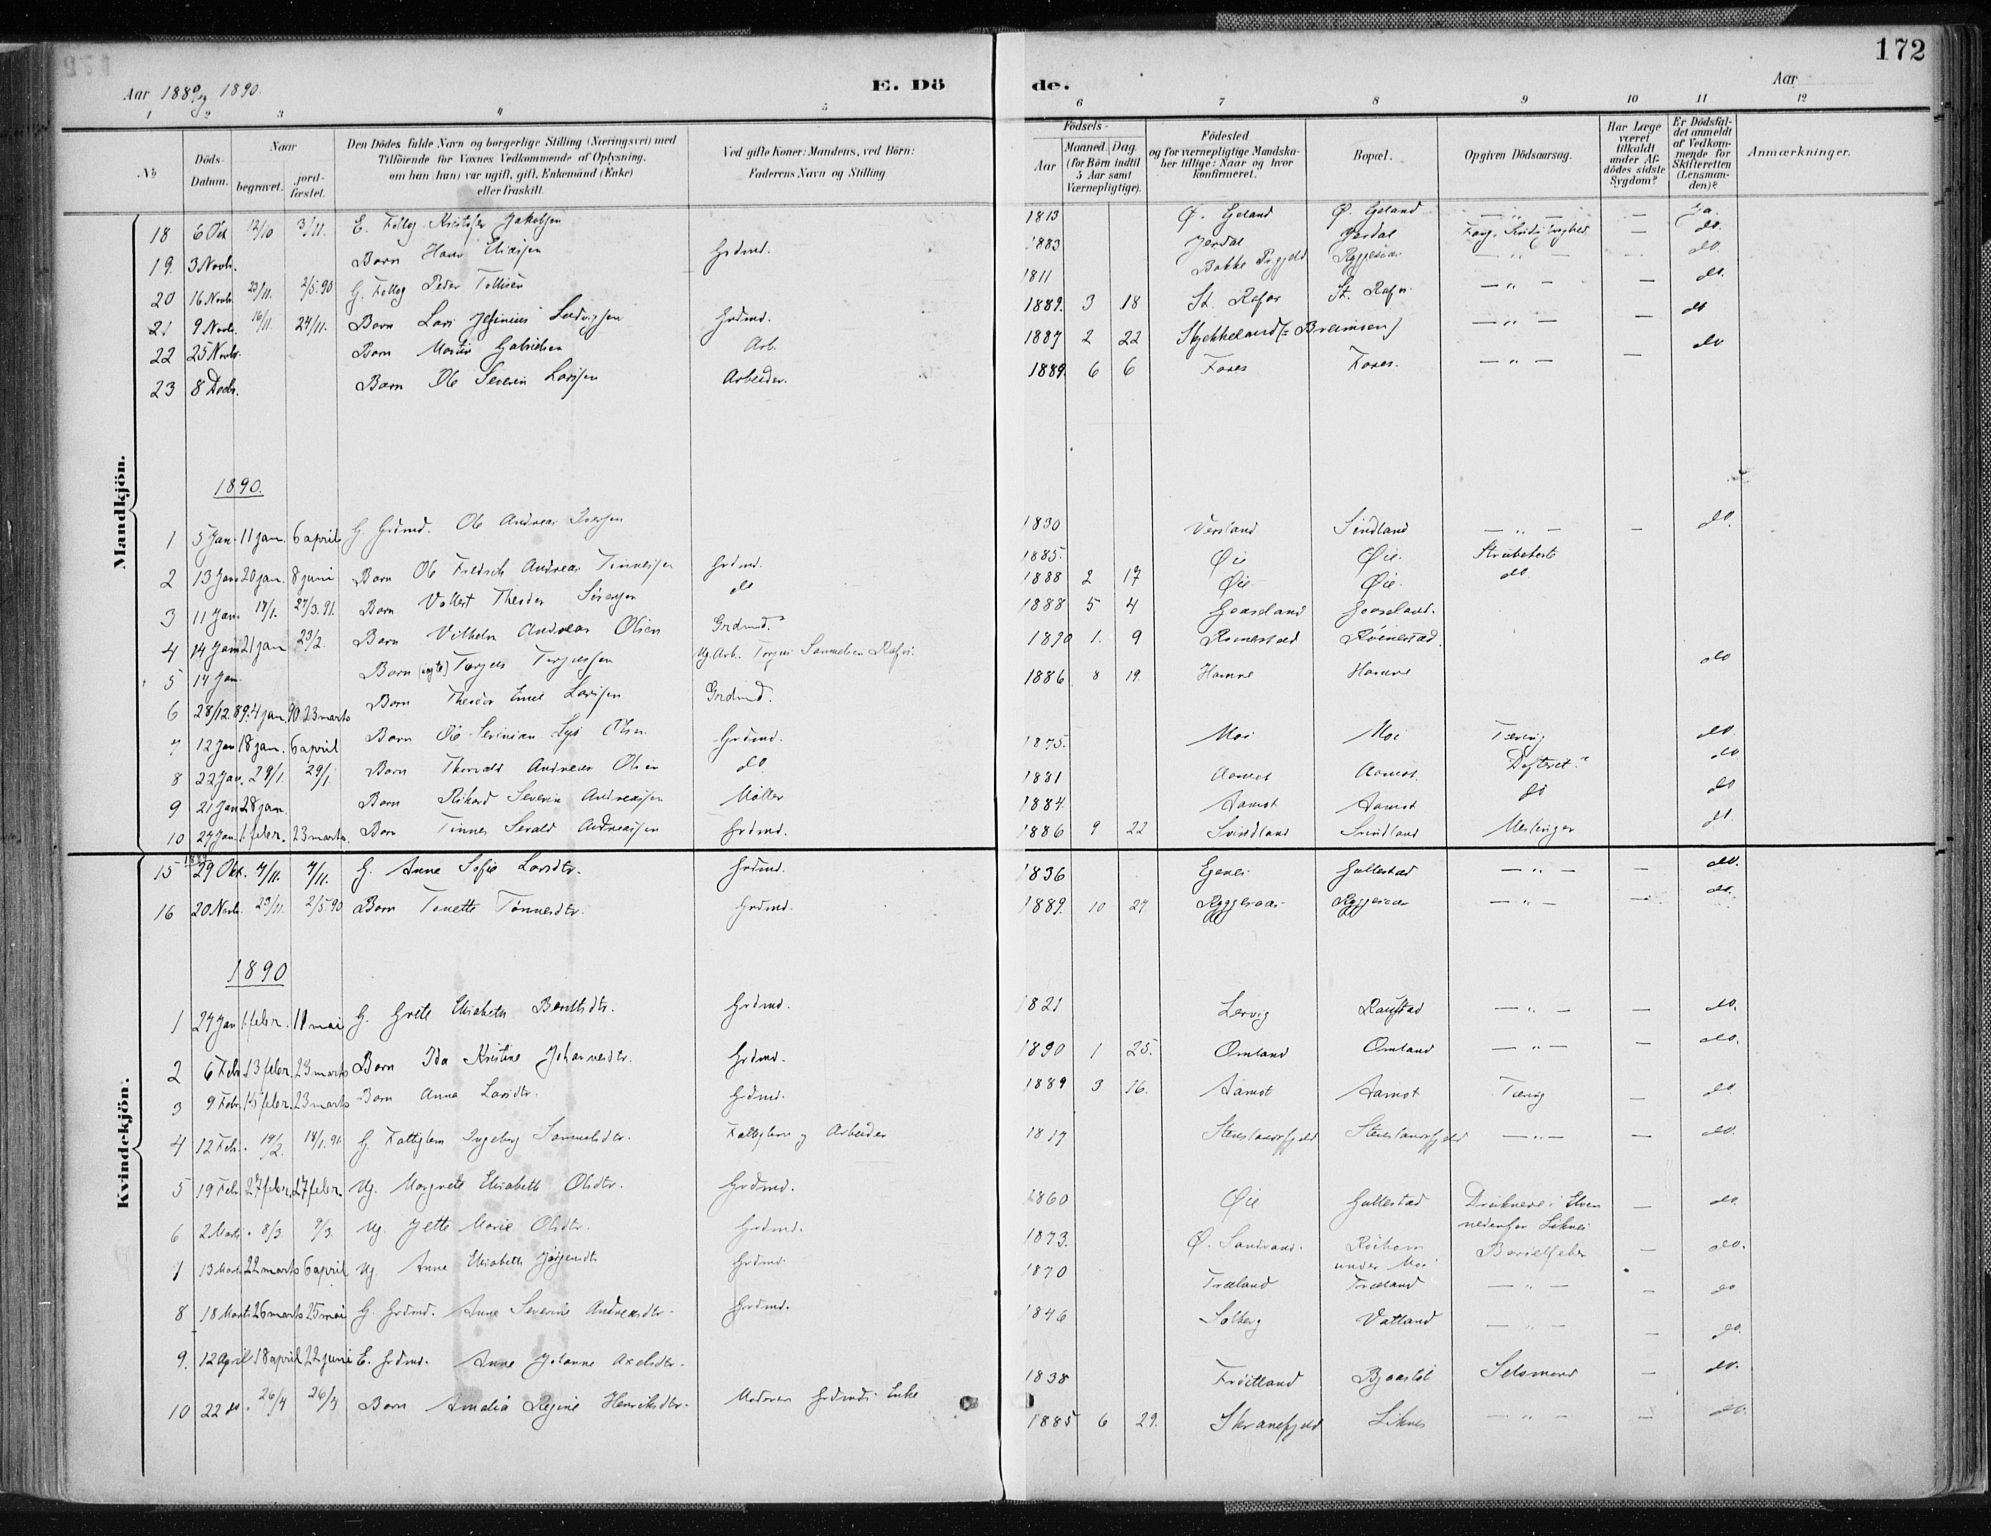 172
Aar 1889 og 1890.
E. Dö de.
Aar
1 2 3 4 5 6 7 8 9 10 11 12
No
Döds-Datum.
Naar
begravet.
jord-fæstet.
Den Dödes fulde Navn og borgerlige Stilling (Næringsvei) med
Tilföiende for Voxnes Vedkommende af Oplysning,
om han (hun) var ugift, gift, Enkemand (Enke)
eller fraskilt.
Ved gifte Koner: Mandens, ved Börn:
Faderens Navn og Stilling
Födsels-
Aar
Maaned. Dag.
(for Börn indtil
5 Aar samt
Værnepligtige).
Födested
og for værnepligtige Mandska-
ber tillige: Naar og hvor
konfirmeret.
Bopæl.
Opgiven Dödsaarsag.
Har Læge
været
tilkaldt
under Af-
dödes sidste
Sygdom?
Er Dödsfal-
det anmeldt
af Vedkom-
mende for
Skifteretten
(Lensman-
den)?
Anmærkninger.
Mandkjön.
18 6 Okt 12/10 3/11. E. Fattig Kristofer Jakobsen 1813 Ø. Geland Ø. Geland — " — — Ja.
19. 3 Novb. Barn Hans Eliassen Grdmd. 1883 Jerdal Jerdal — do.
20 16 Novb. 23/11. 2/5.90 G. Fattig Peder Tollisen 1811 Bakke Pgjeld Ryggesaa — " — do.
21 9 Novb. 16/11. 24/11. Barn Lars Ludvigsen Grdmd. 1889. 3 18 St. Rafos St. Rafos — " — do.
22 25 Novb. Barn Martin Gabrielsen Arb. 1887 2 22 — " — — do
23 8 Decb. Barn Ole Severin Larsen Arbeider. 1889. 6 6 Foses Foses. — " — — do
1890.
1 5 Jan. 11 jan. 6 april G. Grdmd. Ole Andreas Iversen 1830 Versland Sindland — " — — do.
2 13 Jan 20 jan. 8 juni Barn Ole Fredrik Andreas Tinnesen Grdmd. 1885. Øie Øie. Strubehoste
3 11 Jan. 17/1. 27/3.91. Barn Volkert Theodor Sörensen do 1888 2 17 Øie Øie. do.
4 14 Jan 21 jan 23/2. Barn Vilhelm Andreas Olsen Grdmd. 1888 5 4 Gaaseland Gaaseland.
5 14 Jan Barn (uægte) Torjus Torjussen Ug. Arb. Torjus Samuelsen Rafos 1890 1. 9 Rømestad Röinestad
6 28/12.89. 4 jan. 90 23 marts Barn Theodor Emil Larsen Grdmd. 1886 8 19 Hamne Hamne do
7 12 Jan 18 jan. 6 april Barn Ole Severian Olsen Grdmd. 1875. Moi Moi Tæring do.
8 22 Jan. 29/1. 29/1. Barn Thorvald Andreas Olsen do. 1881 Aamot Aamot. Defterit. do
9 21 Jan 28 jan. Barn Rikard Severin Andreassen Møller 1884. Aamot Aamot do do
10 27 Jan. 1. febr. 23 marts. Barn Tinnes Serald Andreassen Grdmd. 1886 9 22 Svindland Svindland Meslinger do.
Kvindekjön.
1889
15 29 Okt. 4/11. 4/11. G. Anne Sofie Larsdtr. Grdmd. 1836 Egenes Gullestad — " — — do.
16 20 Novb. 29/11. 2/5 90 Barn Tonette Tønnesdtr. Grdmd. 1889. 10 27 Ryggesaa Ryggesaa — " — — do.
1890
1 27 Jan 1. febr. 11 mai G. Grete Elisabeth Berntsdtr. Grdmd. 1821 Lervig Raustad — " — — do.
2 6 Febr. 13 febr. 23 marts Barn Ida Kristine Johannesdtr. Grdmd. 1890 1 25. Omland Omland — " — — do.
3 9 Febr. 15 febr. 23 marts Barn Anna Larsdtr. Grdmd. 1889 3 16. Aamot Aamot Tæring — do
4 12 Febr. 19/2. 18/1.91. G. Fattiglem Ingeborg Samuelsdtr. Fattiglem og Arbeider 1817 Stenslandsfjeld Stenslandsfjeld — " — — do.
5 19 Febr. 27 febr. 27 febr. Ug. Margrete Elisabeth Olsdtr. Grdmd. 1860 Øie Gullestad Druknede i Elven nedenfor Liknes — do
6 2 Marts 8/3 9/3. Ug. Jette Marie Olsdtr. Grdmd. 1873. Ø. Sandvand. Röiham under Moi Barselfeber — do.
7 13 Marts 22 marts 6 april Ug Anne Elisabeth Jørgensdtr Grdmd. 1870 Træland Træland — " — — do
8 18 Marts 26 marts 25 mai G. Grdmd. Anne Severine Andreasdtr. Grdmd. 1846 Solberg Vatland — " — — do.
9. 12 April 18 april 22 juni E. Grdmd. Anne Johanne Axelsdtr. 1838 Fröitland Bjaastöl Selvmord — do.
10 22 do. 26/4 26/4 Barn Amalia Regine Henriksdtr. Moderen Grdmds Enke 1885 6 29. Skranefjeld Liknes — " — — do.